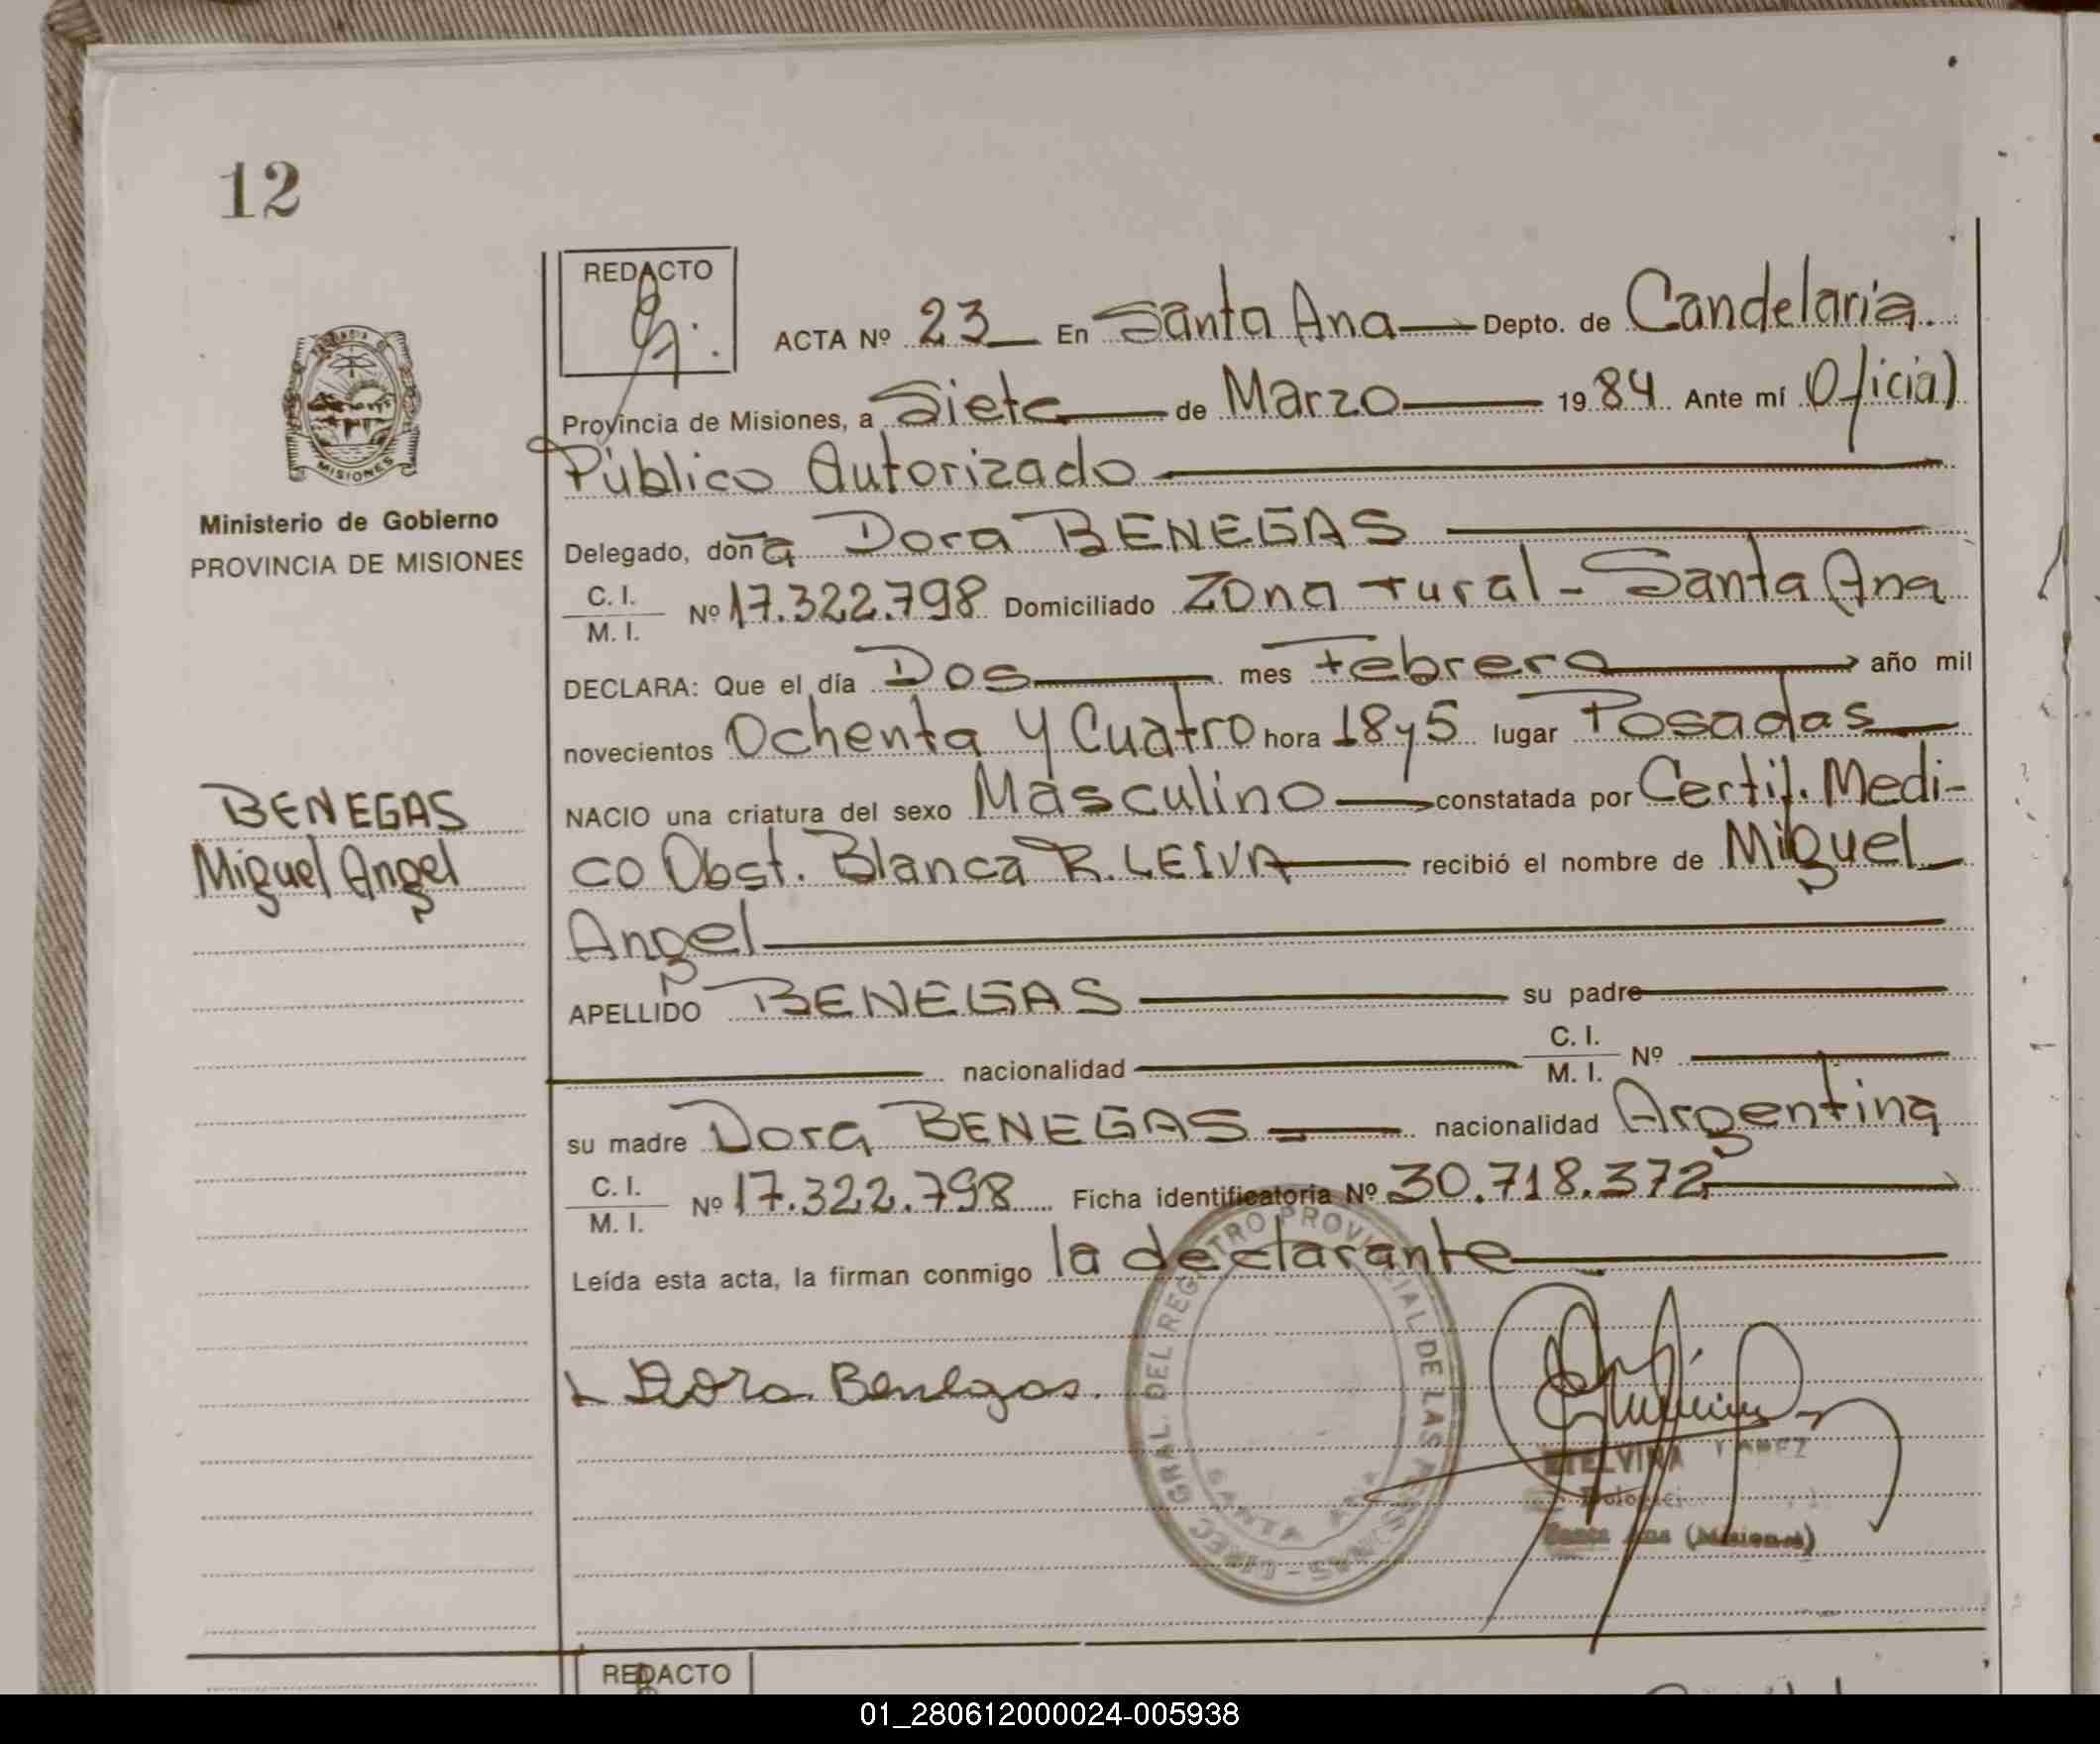 12
REDACTO
ACTA Nº 23 En Santa Ana Depto. de Candelaria.
Provincia de Misiones, a Siete de Marzo 1984 Ante mí Oficial
Público Autorizado
MISIONES
Ministerio de Gobierno
PROVINCIA DE MISIONES
Delegado, doña Dora BENEGAS
C. I.
M. I. Nº 17.322.798 Domiciliado Zona rural - Santa Ana
DECLARA: Que el día Dos mes Febrero año mil
novecientos Ochenta y Cuatro hora 18 y 5 lugar Posadas
BENEGAS
Miguel Angel
NACIO una criatura del sexo Masculino constatada por Certif. Medi-
co Obst. Blanca R. LEIVA recibió el nombre de Miguel
Angel
APELLIDO BENEGAS su padre
nacionalidad C. I.
M. I. Nº
su madre Dora BENEGAS nacionalidad Argentina
C. I.
M. I. Nº 17.322.798 Ficha identificatoria Nº 30.718.372
Leída esta acta, la firman conmigo la declarante
Dora Benegas.
GRAL. DEL REGISTRO PROVINCIAL DE LAS PERSONAS - DIREC
SANTA ANA
ETELVINA YAÑEZ
Santa Ana (Misiones)
REDACTO
01_280612000024-005938